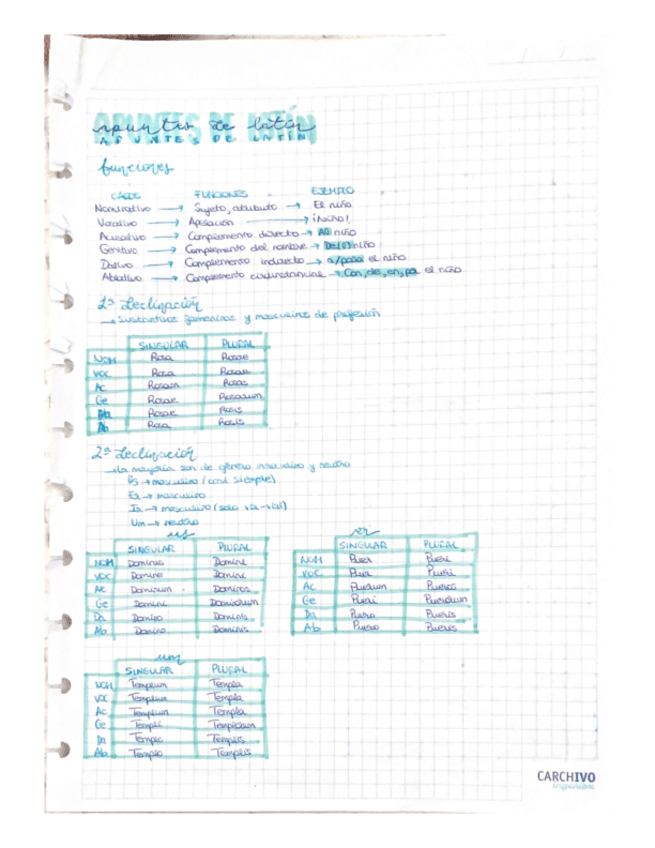 APUNTES DE LATÍN
apuntes de latín
APUNTES DE LATÍN
funciones
CASOS FUNCIONES EJEMPLO
Nominativo → Sujeto, atributo → El niño
Vocativo → Apelación → ¡Niño!
Acusativo → Complemento directo → Al niño
Genitivo → Complemento del nombre → De(l) niño
Dativo → Complemento indirecto → a/para el niño
Ablativo → Complemento circunstancial → Con, de, en, por el niño
1ª declinación
→ Sustantivos femeninos y masculinos de profesión
SINGULAR PLURAL
NOM Rosa Rosae
VOC Rosa Rosae
Ac Rosam Rosas
Ge Rosae Rosarum
Da Rosae Rosis
Ab Rosa Rosis
2ª declinación
→ La mayoría son de género masculino y neutro
Us → masculino (casi siempre)
Er → masculino
Ir → masculino (solo
Um → neutro
us
SINGULAR PLURAL
NOM Dominus Domini
VOC Domine Domini
Ac Dominum Dominos
Ge Domini Dominorum
Da Domino Dominis
Ab Domino Dominis
er
SINGULAR PLURAL
NOM Puer Pueri
VOC Puer Pueri
Ac Puerum Pueros
Ge Pueri Puerorum
Da Puero Pueris
Ab Puero Pueris
um
SINGULAR PLURAL
NOM Templum Templa
VOC Templum Templa
Ac Templum Templa
Ge Templi Templorum
Da Templo Templis
Ab Templo Templis
CARCHIVO